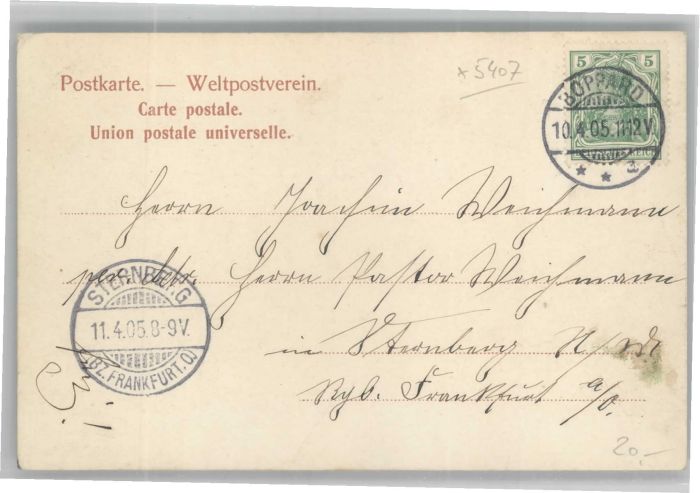 Postkarte. — Weltpostverein.
Carte postale.
Union postale universelle.
*5407
5 5
BOPPARD
10.4.05.11-12V.
* * a
REICH
Herrn Joachim Weichmann
Herrn Pastor Weichmann
in Sternberg N/M
Rgb. Frankfurt a/O.
STERNBERG
11.4.05.8-9V.
(BZ. FRANKFURT. O.)
20.-